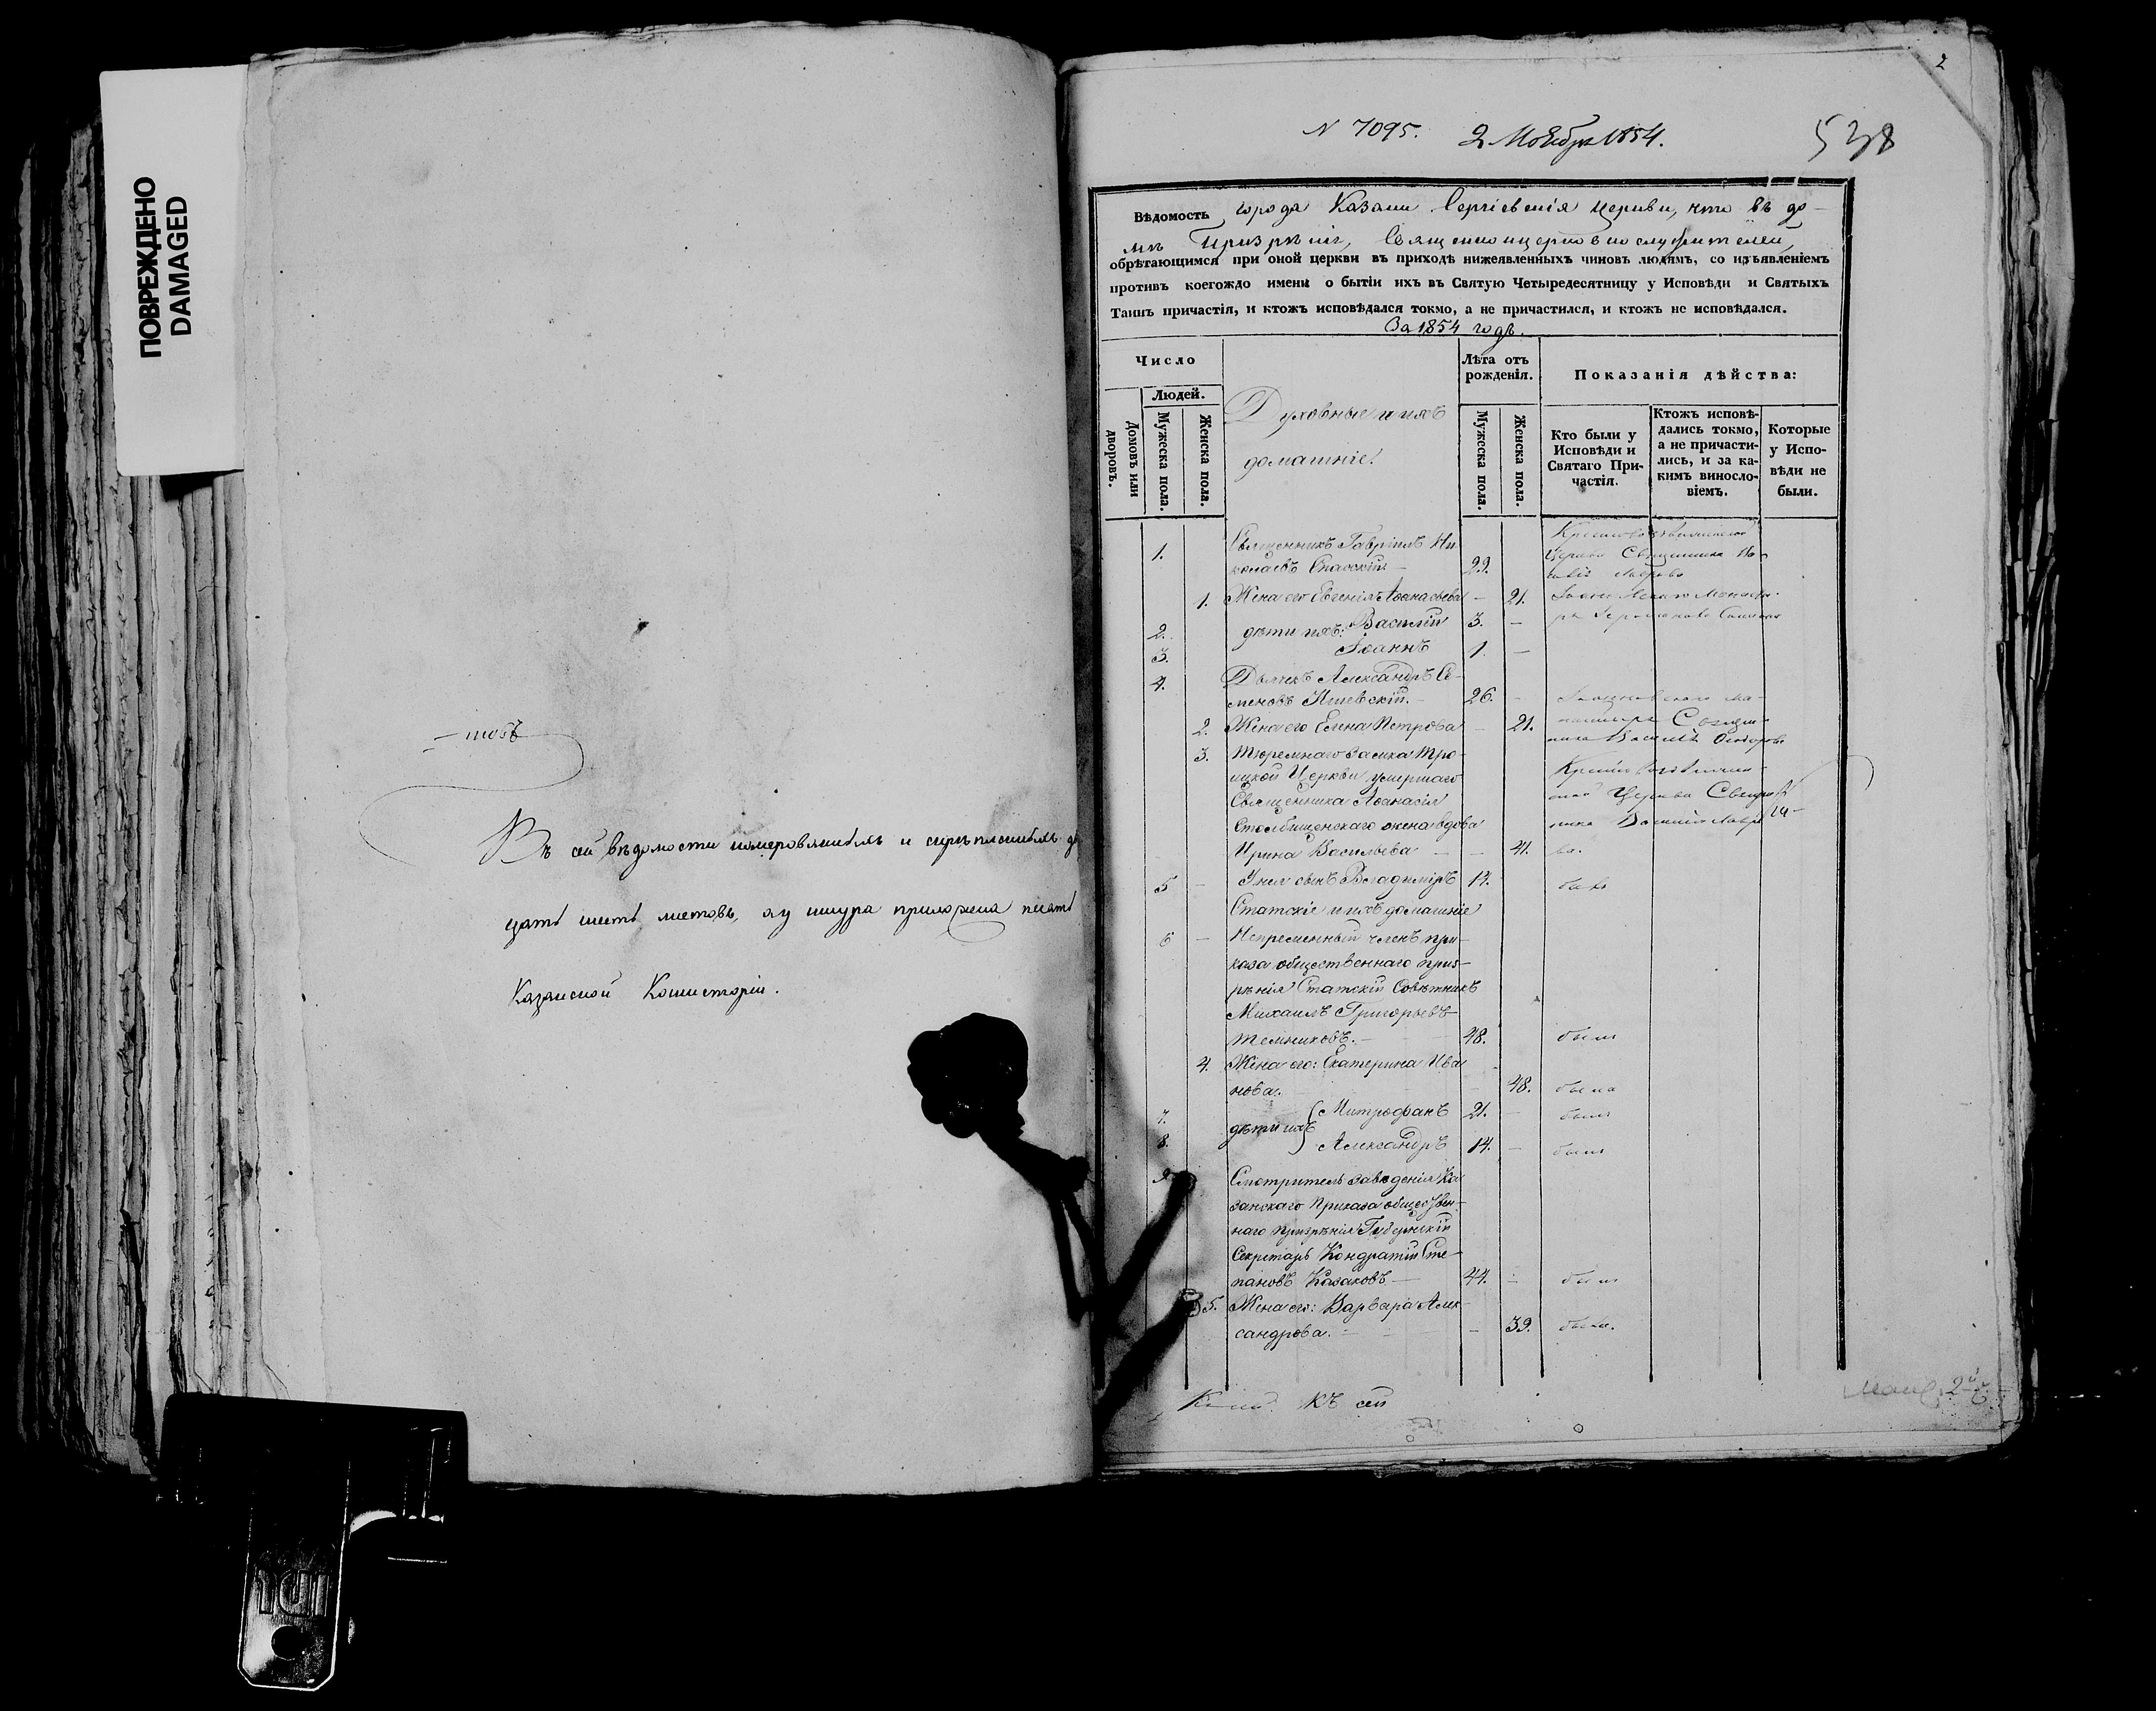 ПОВРЕЖДЕНО
DAMAGED
Въ сей вѣдомости
цать шесть листовъ, а у шнура приложена печать
Казанской Консисторіи.
2
N 7095. 2 Ноября 1854.
538
Вѣдомость города Казани Сергіевскія церкви, что въ до-
мѣ Призрѣнія, Священноицерковнослужителей,
обрѣтающимся при оной церкви въ приходѣ нижеявленныхъ чиновъ людямъ, со изъявленіемъ
противъ коегождо имени о бытіи ихъ въ Святую Четыредесятницу у Исповѣди и Святыхъ
Таинъ причастія, и ктожъ исповѣдался токмо, а не причастился, и ктожъ не исповѣдался.
За 1854 годъ.
Число
Людей.
Домовъ или дворовъ.
Мужеска пола.
Женска пола.
Духовные и ихъ
домашніе.
Лѣта отъ
рожденія.
Мужеска пола.
Женска пола.
Показанія дѣйства:
Кто были у
Исповѣди и
Святаго При-
частія.
Ктожъ исповѣ-
дались токмо,
а не причасти-
лись, и за ка-
кимъ винословіемъ.
Которые
у Испо-
вѣди не
были.
1. Священникъ Гавріилъ Ни-
колаевъ Спасскій — 29.
Церкви Священника
1. Жена его Евгенія Аѳанасьева — 21.
2. дѣти ихъ: Василій 3. —
3. Іоаннъ 1. —
4. Дьячекъ Александръ Се-
меновъ 26. —
2. Жена его Елена Петрова — 21.
3. Тюремнаго замка Тро-
ицкой Церкви умершаго
Священника Аѳанасія
Столбищенскаго жена вдова
Ирина Васильева — — 41.
5 — У нея сынъ Владиміръ 14. былъ
Статскіе и ихъ домашніе
6 — Непременный членъ при-
каза общественнаго приз-
рѣнія Статскій Совѣтникъ
Михаилъ Григорьевъ
Темниковъ. — 48. былъ
4. Жена его: Екатерина Ива
нова. 48. была
7. дѣти ихъ Митрофанъ 21. — былъ
8. Александръ 14. — былъ
9 Смотритель заведенія Ка
занскаго Приказа обществен-
наго Призрѣнія Губернскій
Секретарь Кондратій Сте-
пановъ Казаковъ — 44. былъ
5. Жена его: Варвара Алек-
сандрова. — 39. была.
къ сей